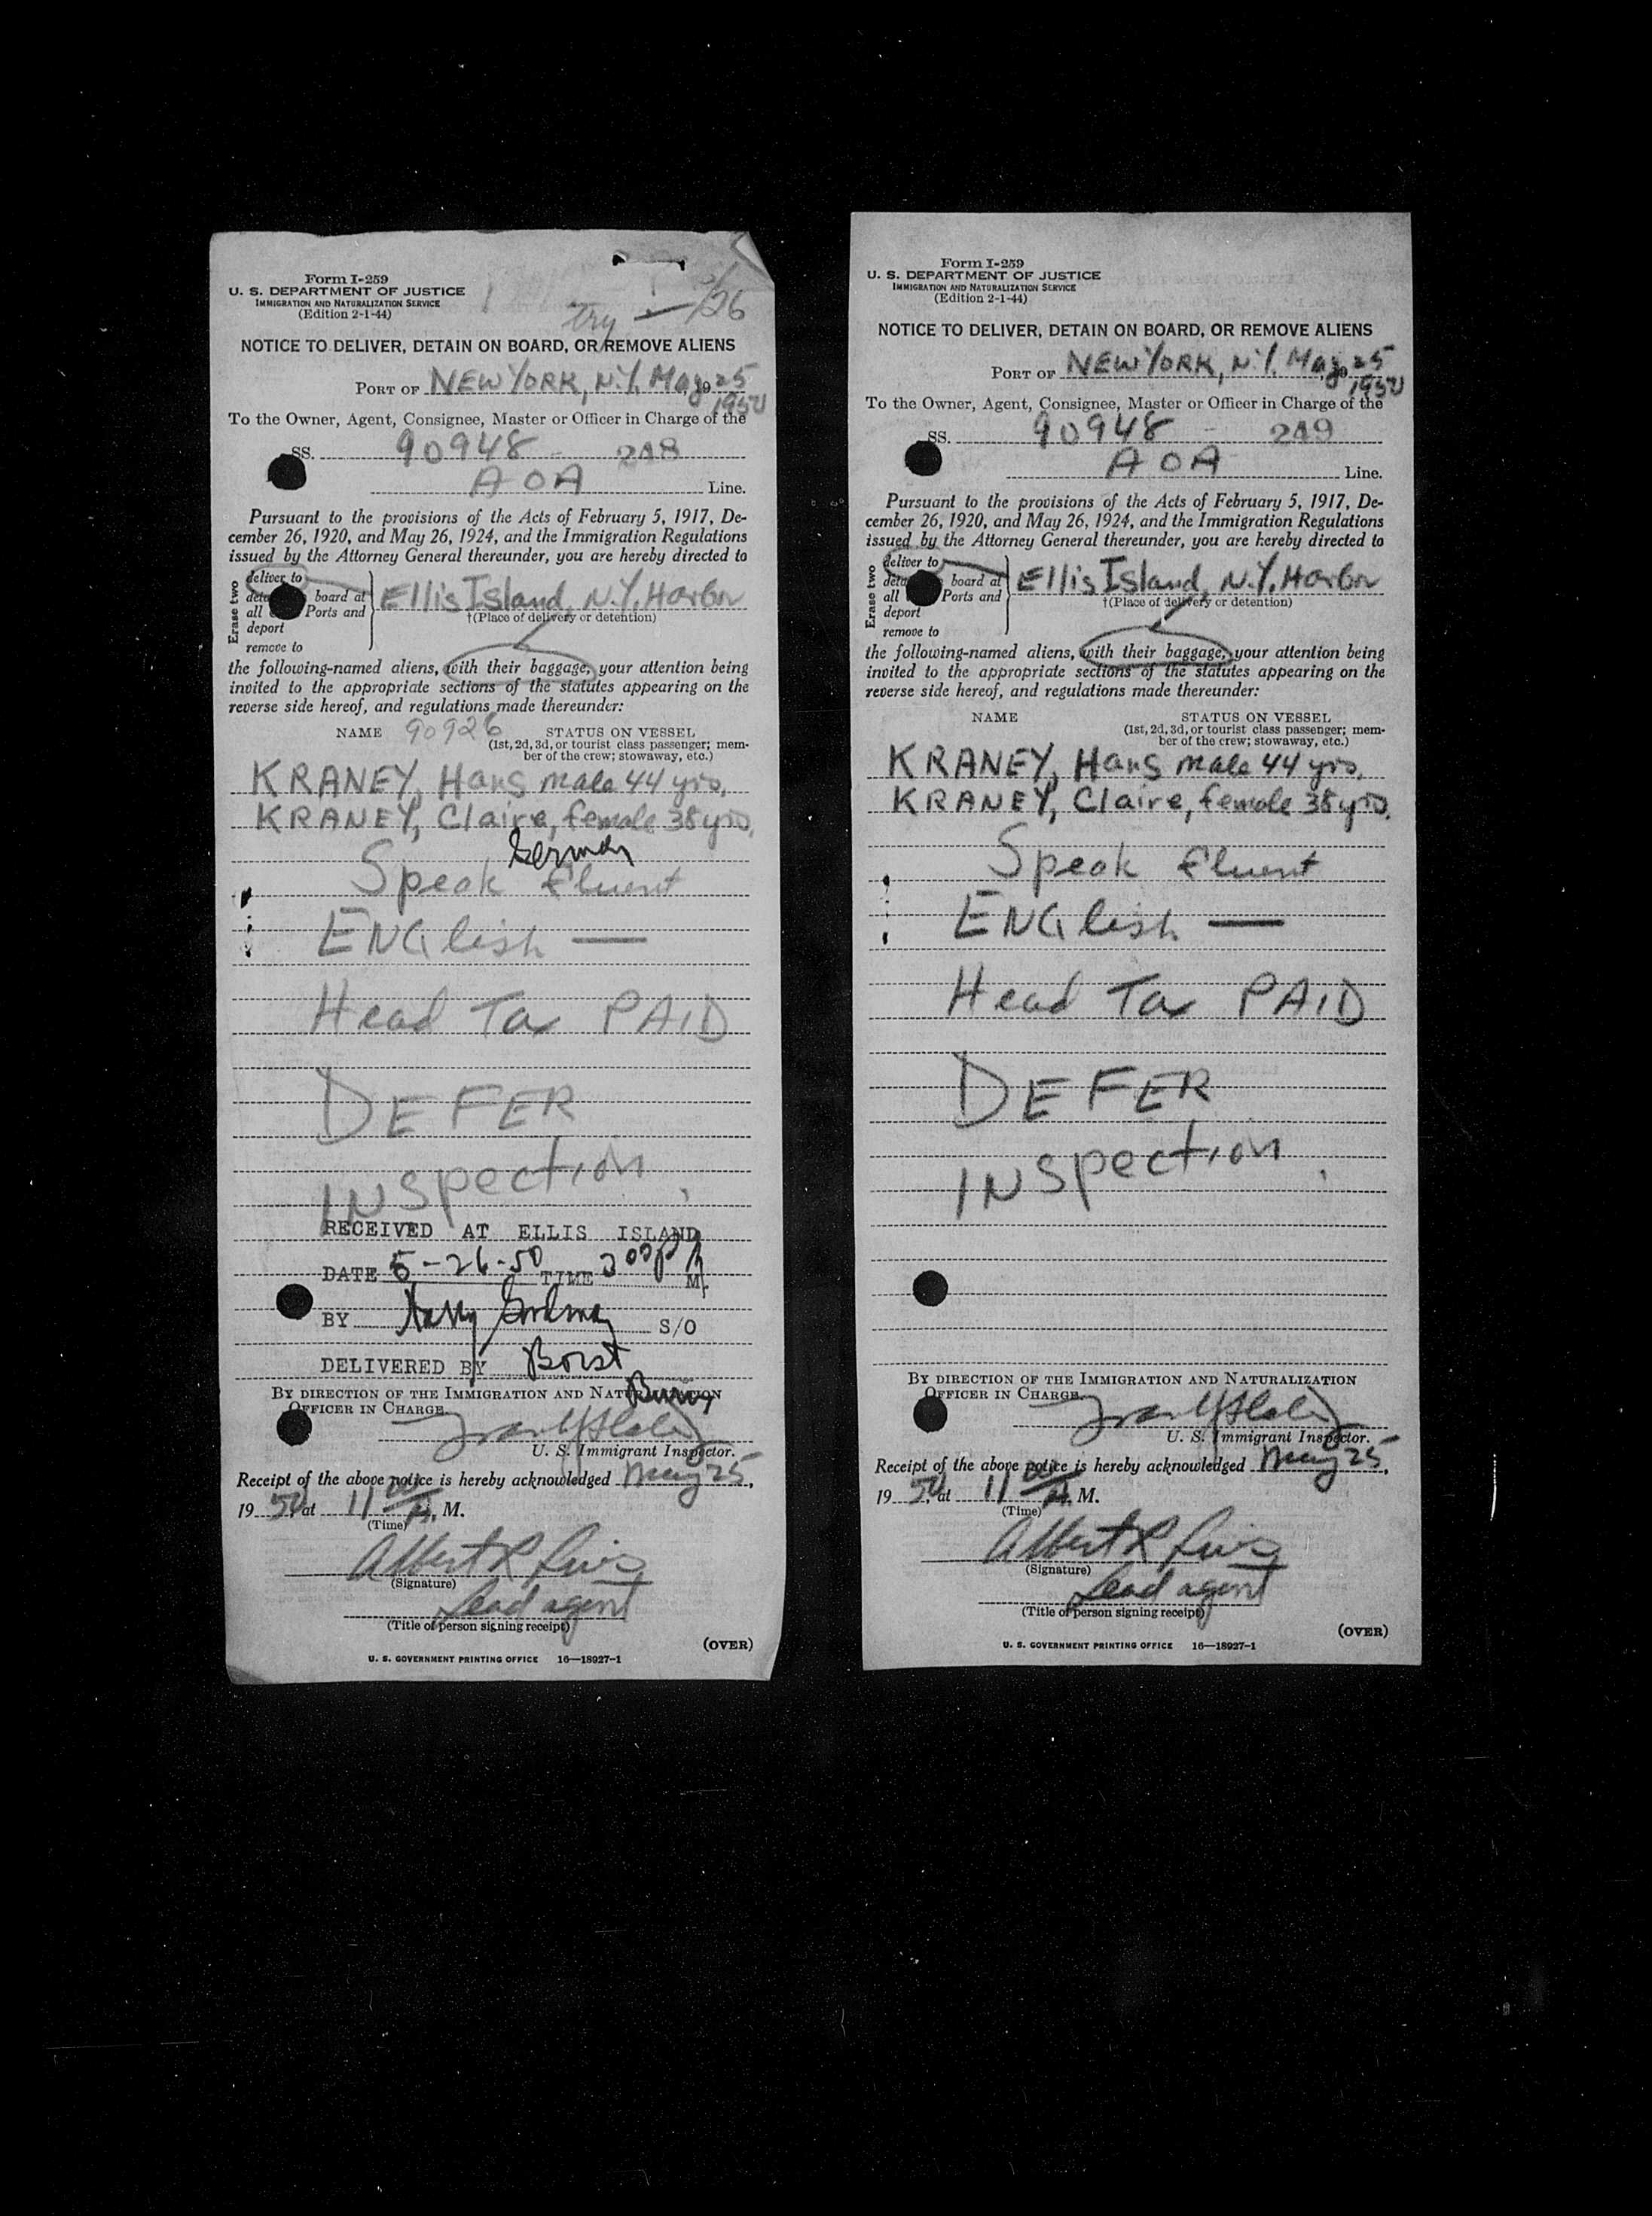 Form I-259
U. S. DEPARTMENT OF JUSTICE
IMMIGRATION AND NATURALIZATION SERVICE
(Edition 2-1-44)
try /26
NOTICE TO DELIVER, DETAIN ON BOARD, OR REMOVE ALIENS
PORT OF NEW YORK, N.Y. May 25
19 1950
To the Owner, Agent, Consignee, Master or Officer in Charge of the
SS. 90948 - 248
AOA Line.
Pursuant to the provisions of the Acts of February 5, 1917, De-
cember 26, 1920, and May 26, 1924, and the Immigration Regulations
issued by the Attorney General thereunder, you are hereby directed to
Erase two
deliver to
board at
all Ports and
deport
remove to
Ellis Island, N.Y. Harbor
†(Place of delivery or detention)
the following-named aliens, with their baggage, your attention being
invited to the appropriate sections of the statutes appearing on the
reverse side hereof, and regulations made thereunder:
NAME 90926 STATUS ON VESSEL
(1st, 2d, 3d, or tourist class passenger; mem-
ber of the crew; stowaway, etc.)
KRANEY, Hans male 44 yrs.
KRANEY, Claire, female 38 yrs.
German
Speak fluent
ENGlish —
Head Tax PAID
DEFER
INspection
RECEIVED AT ELLIS ISLAND
DATE 5-26-50 TIME 3 00 P M.
BY Harry S/O
DELIVERED BY Borst
BY DIRECTION OF THE IMMIGRATION AND NATURALIZATION
OFFICER IN CHARGE.
U. S. Immigrant Inspector.
Receipt of the above notice is hereby acknowledged May 25,
1950, at 11 00 A. M.
(Time)
Albert R
(Signature)
Lead agent
(Title of person signing receipt)
(OVER)
U. S. GOVERNMENT PRINTING OFFICE 16—18927-1
Form I-259
U. S. DEPARTMENT OF JUSTICE
IMMIGRATION AND NATURALIZATION SERVICE
(Edition 2-1-44)
NOTICE TO DELIVER, DETAIN ON BOARD, OR REMOVE ALIENS
PORT OF NEW YORK, N.Y. May 25
19 1950
To the Owner, Agent, Consignee, Master or Officer in Charge of the
SS. 90948 - 249
AOA Line.
Pursuant to the provisions of the Acts of February 5, 1917, De-
cember 26, 1920, and May 26, 1924, and the Immigration Regulations
issued by the Attorney General thereunder, you are hereby directed to
Erase two
deliver to
board at
all Ports and
deport
remove to
Ellis Island, N.Y. Harbor
†(Place of delivery or detention)
the following-named aliens, with their baggage, your attention being
invited to the appropriate sections of the statutes appearing on the
reverse side hereof, and regulations made thereunder:
NAME STATUS ON VESSEL
(1st, 2d, 3d, or tourist class passenger; mem-
ber of the crew; stowaway, etc.)
KRANEY, Hans male 44 yrs.
KRANEY, Claire, female 38 yrs.
Speak fluent
ENGlish —
Head Tax PAID
DEFER
INspection
BY DIRECTION OF THE IMMIGRATION AND NATURALIZATION
OFFICER IN CHARGE.
U. S. Immigrant Inspector.
Receipt of the above notice is hereby acknowledged May 25,
1950, at 11 00 A. M.
(Time)
Albert R
(Signature)
Lead agent
(Title of person signing receipt)
(OVER)
U. S. GOVERNMENT PRINTING OFFICE 16—18927-1